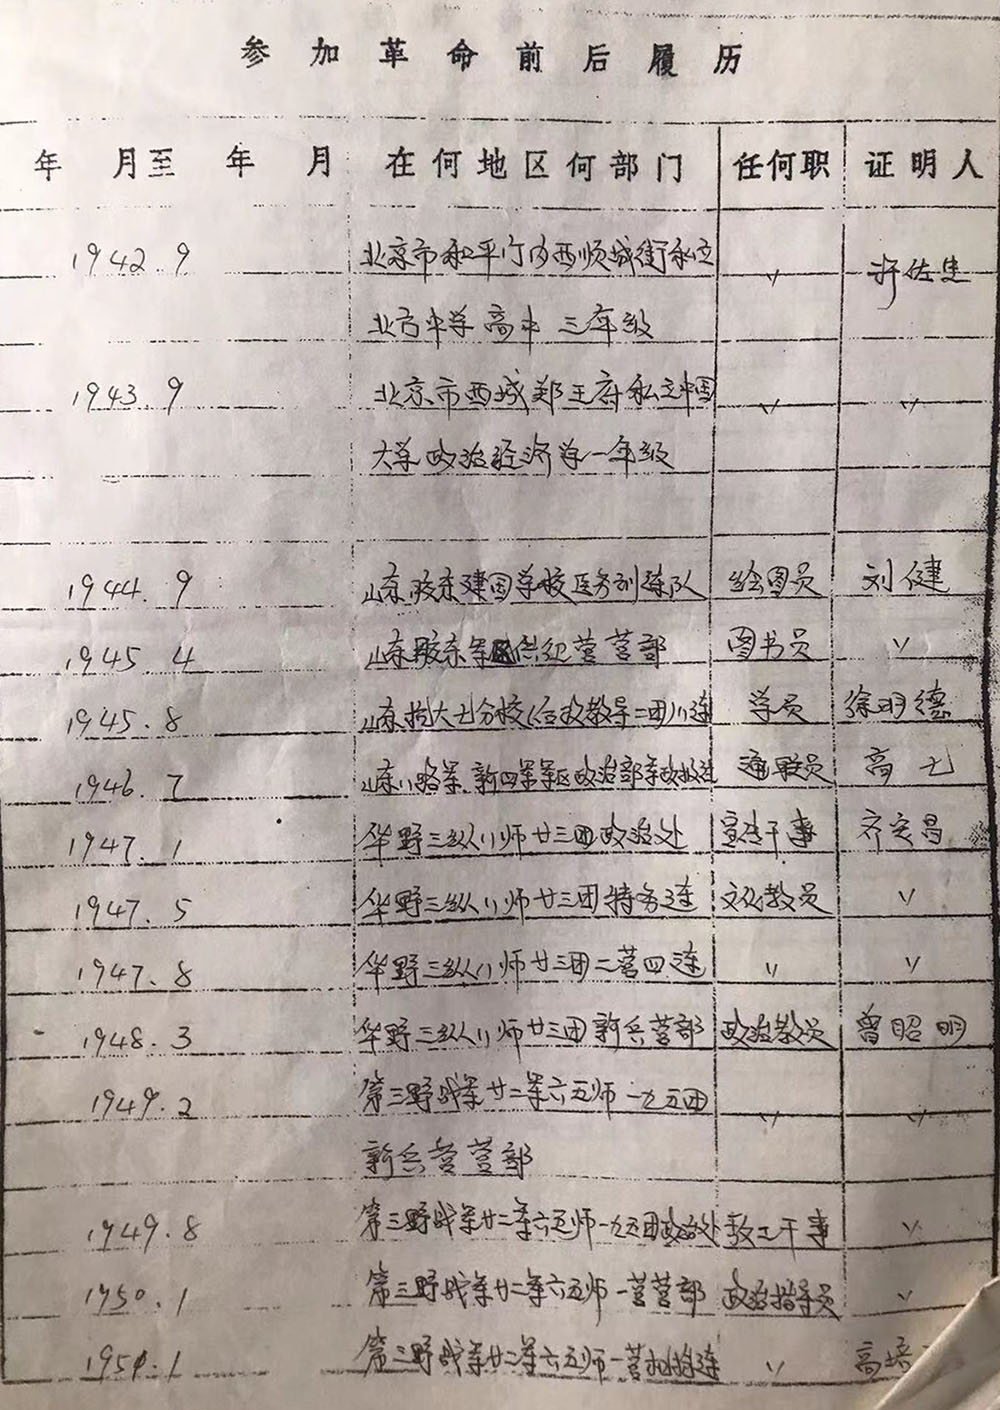 参加革命前后履历
年 月至 年 月 在何地区何部门 任何职 证明人
1942.9 北京市和平门内西顺城街私立 〃 许佐生
北方中学高中三年级
1943.9 北京市西城郑王府私立中国 〃 〃
大学政治经济学一年级
1944.9 山东胶东建国学校医务训练队 绘图员 刘健
1945.4 山东胶东军区供纪营营部 图书员 〃
1945.8 山东抗大七分校(后改教导二团)八连 学员 徐明德
1946.7 山东八路军、新四军军区政治部 员 高
1947.1 华野三纵八师廿三团政治处 宣传干事 齐定昌
1947.5 华野三纵八师廿三团特务连 文化教员 〃
1947.8 华野三纵八师廿三团二营四连 〃 〃
1948.3 华野三纵八师廿三团新兵营部 政治教员 曾昭明
1949.2 第三野战军廿二军六五师一九五团 〃 〃
新兵营营部
1949.8 第三野战军廿二军六五师一九五团政治处 教工干事 〃
1950.1 第三野战军廿二军六五师一营营部 政治指导员 〃
1951.1 第三野战军廿二军六五师一营机枪连 〃 高培